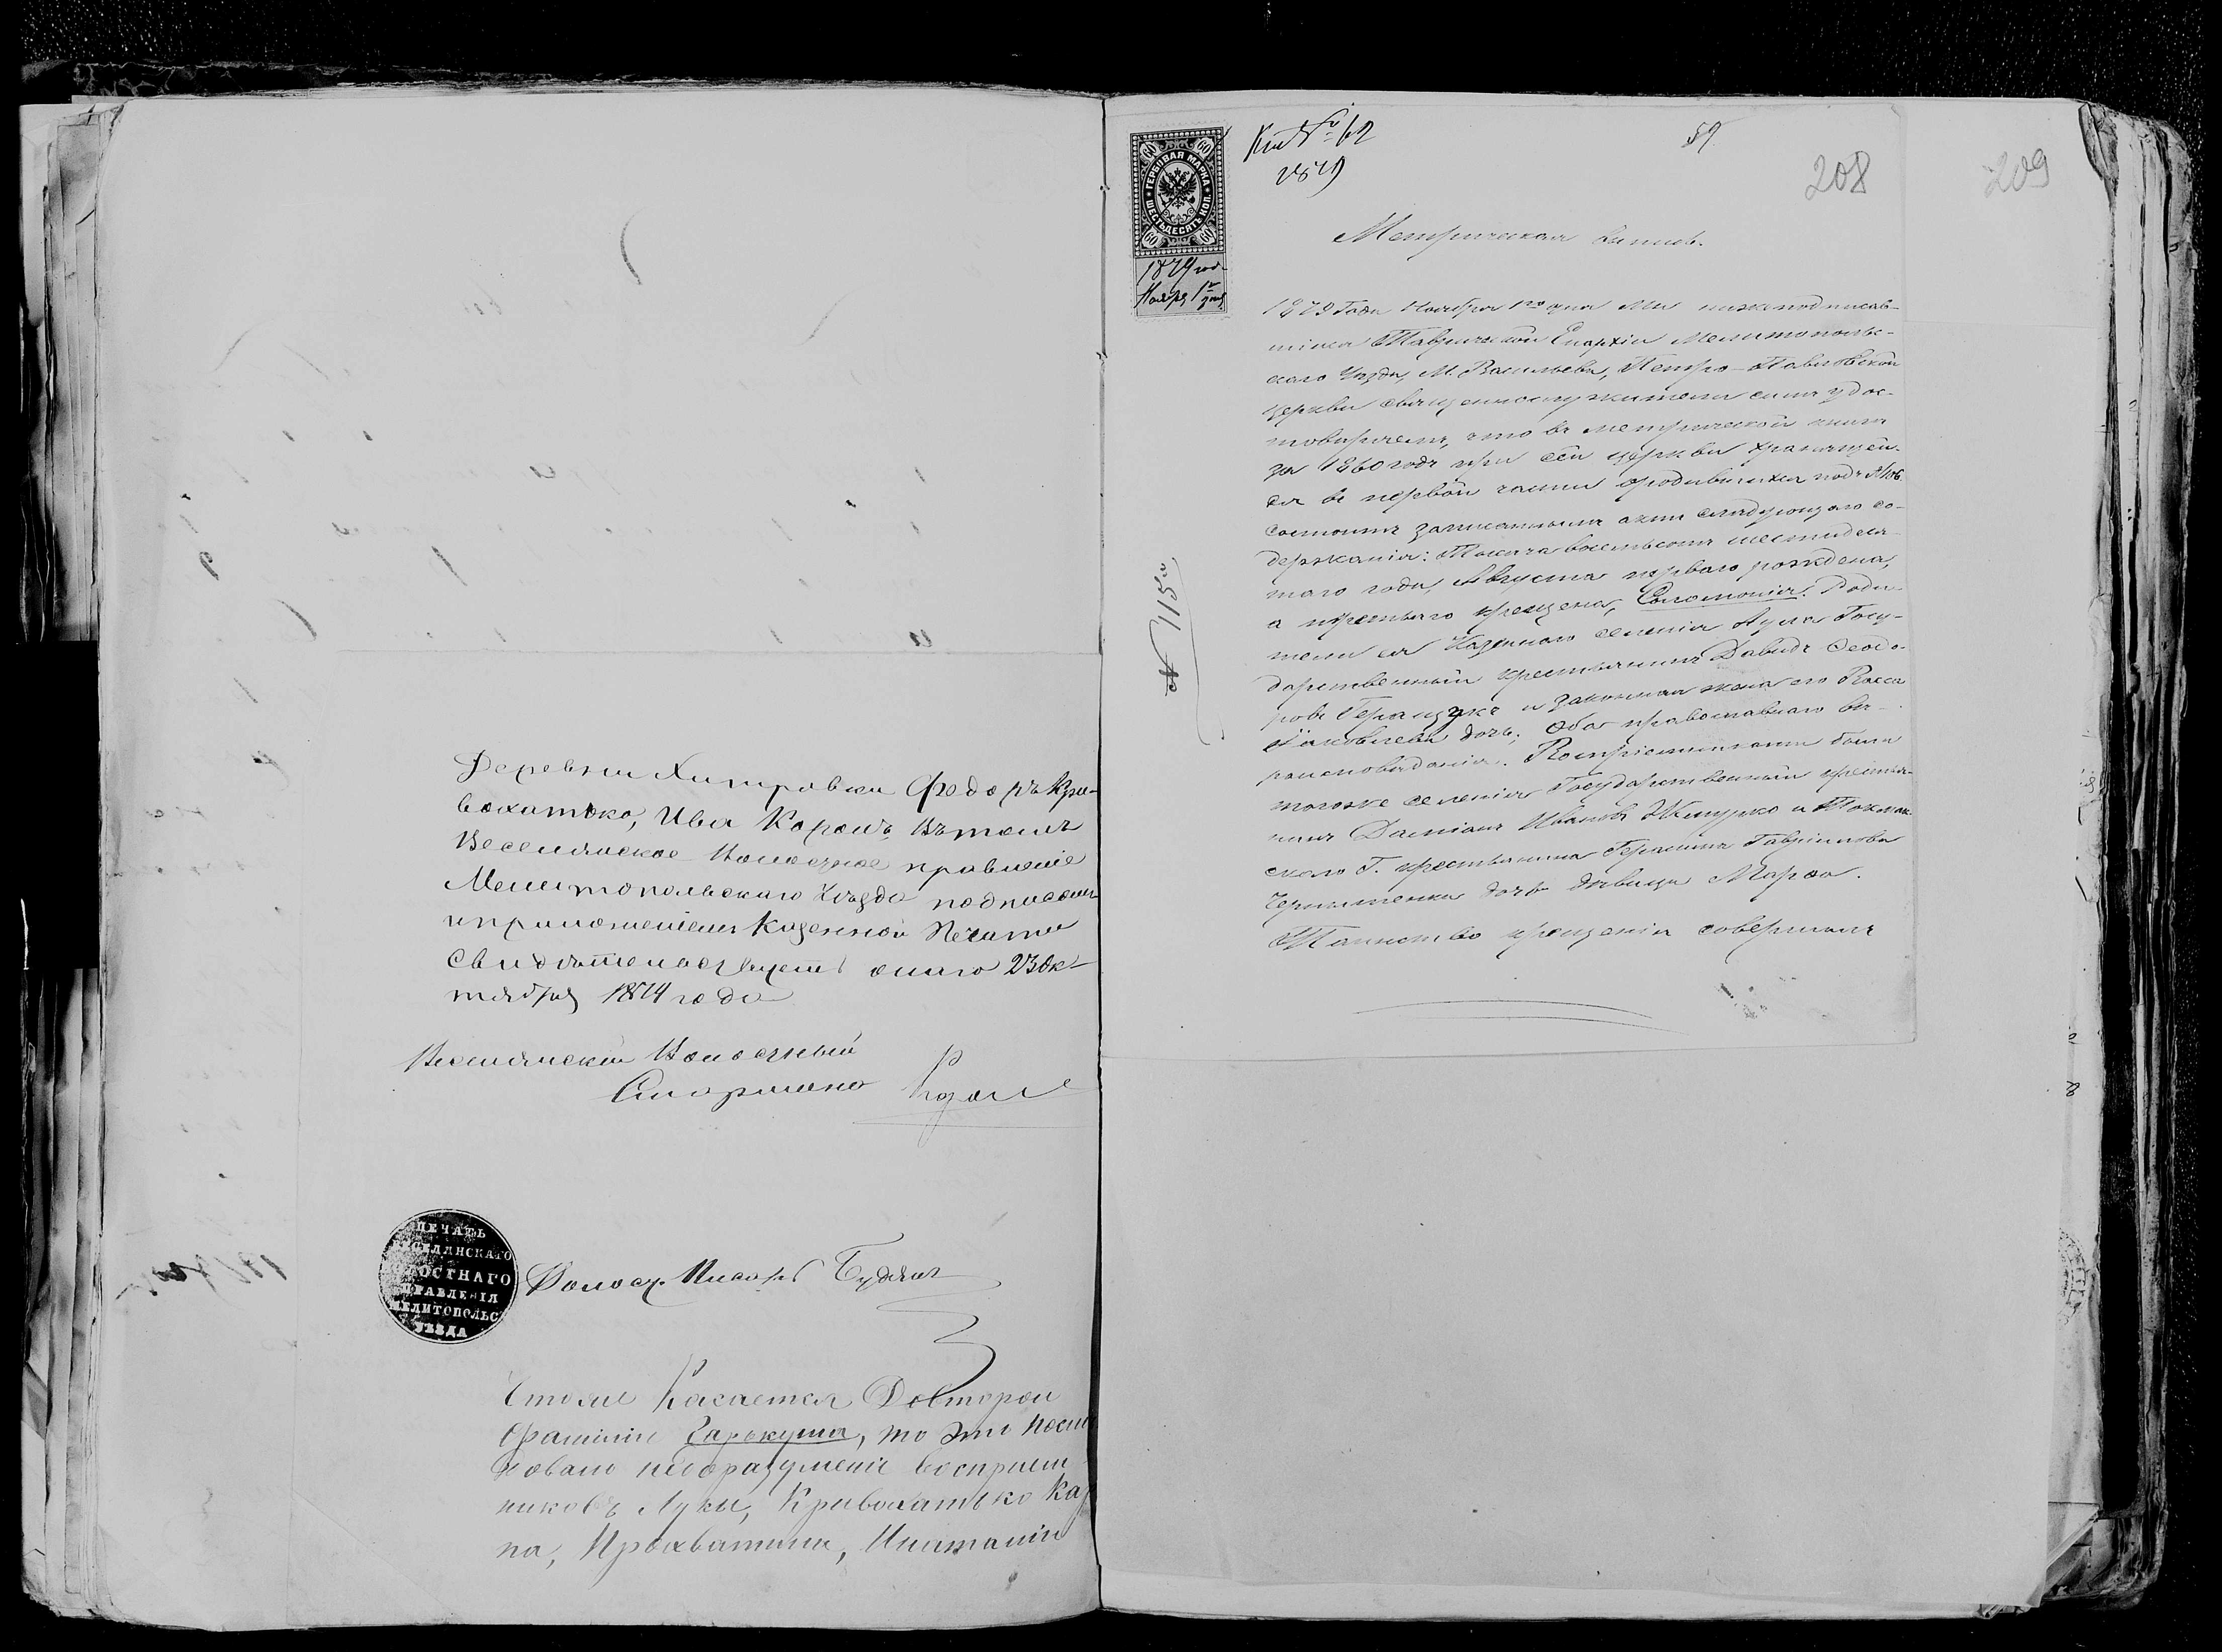 Деревни Хитровки Федоръ Кри-
вохатько, Ива Король, въ томъ
Веселянское Волостное правленіе
Мелитопольскаго Уѣзда подписомъ
и приложеніемъ Казенной Печати
свидѣтельствуетъ 23 Ок-
тября года
Веселянскій Волостный
Старшина
ПЕЧАТЬ
ВЕСЕЛЯНСКАГО
ВОЛОСТНАГО
ПРАВЛЕНІЯ
МЕЛИТОПОЛЬС
УѢЗДА
Волост. Писарь
Чтоже Касается До второй
фамиліи, то это
недоразуменіе воспріем
никовъ Луки, Кривохатько Кар
па,
60 60
ГЕРБОВАЯ МАРКА
ШЕСТЬДЕСЯТЪ КОП.
60 60
1879 год.
Ноября 1 дня
№ 62
1879
59
208
209
№ 115
Метрическая выпись.
1879 Года Ноября 1го дня Мы нижеподписав-
шіеся Таврической Епархіи Мелитополь-
скаго Уѣзда, М. Васильевки, Петро-Павловской
церкви священнослужители симъ удос-
товѣряемъ, что въ метрической книгѣ
за 1860 годъ при сей церкви хранящей-
ся въ первой части о родившихся подъ №
состоитъ записаннымъ актъ слѣдующаго со-
держанія: Тысяча восемьсотъ шестидеся-
таго года, Августа перваго рождена,
а третьяго крещена, Соломонія. Роди-
тели ея Казеннаго селенія Госу-
дарственный крестьянинъ Давидъ Ѳеодо-
ровъ и законная жена его
Іаковлева дочь; оба православнаго вѣ-
роисповѣданія. Воспріемниками были
тогоже селенія Государственный крестья-
нинъ Даміанъ Ивановъ и Токмак-
скаго Г. крестьянина Герасима Гавріилова
дочь дѣвица Марѳа.
Таинство крещенія совершилъ